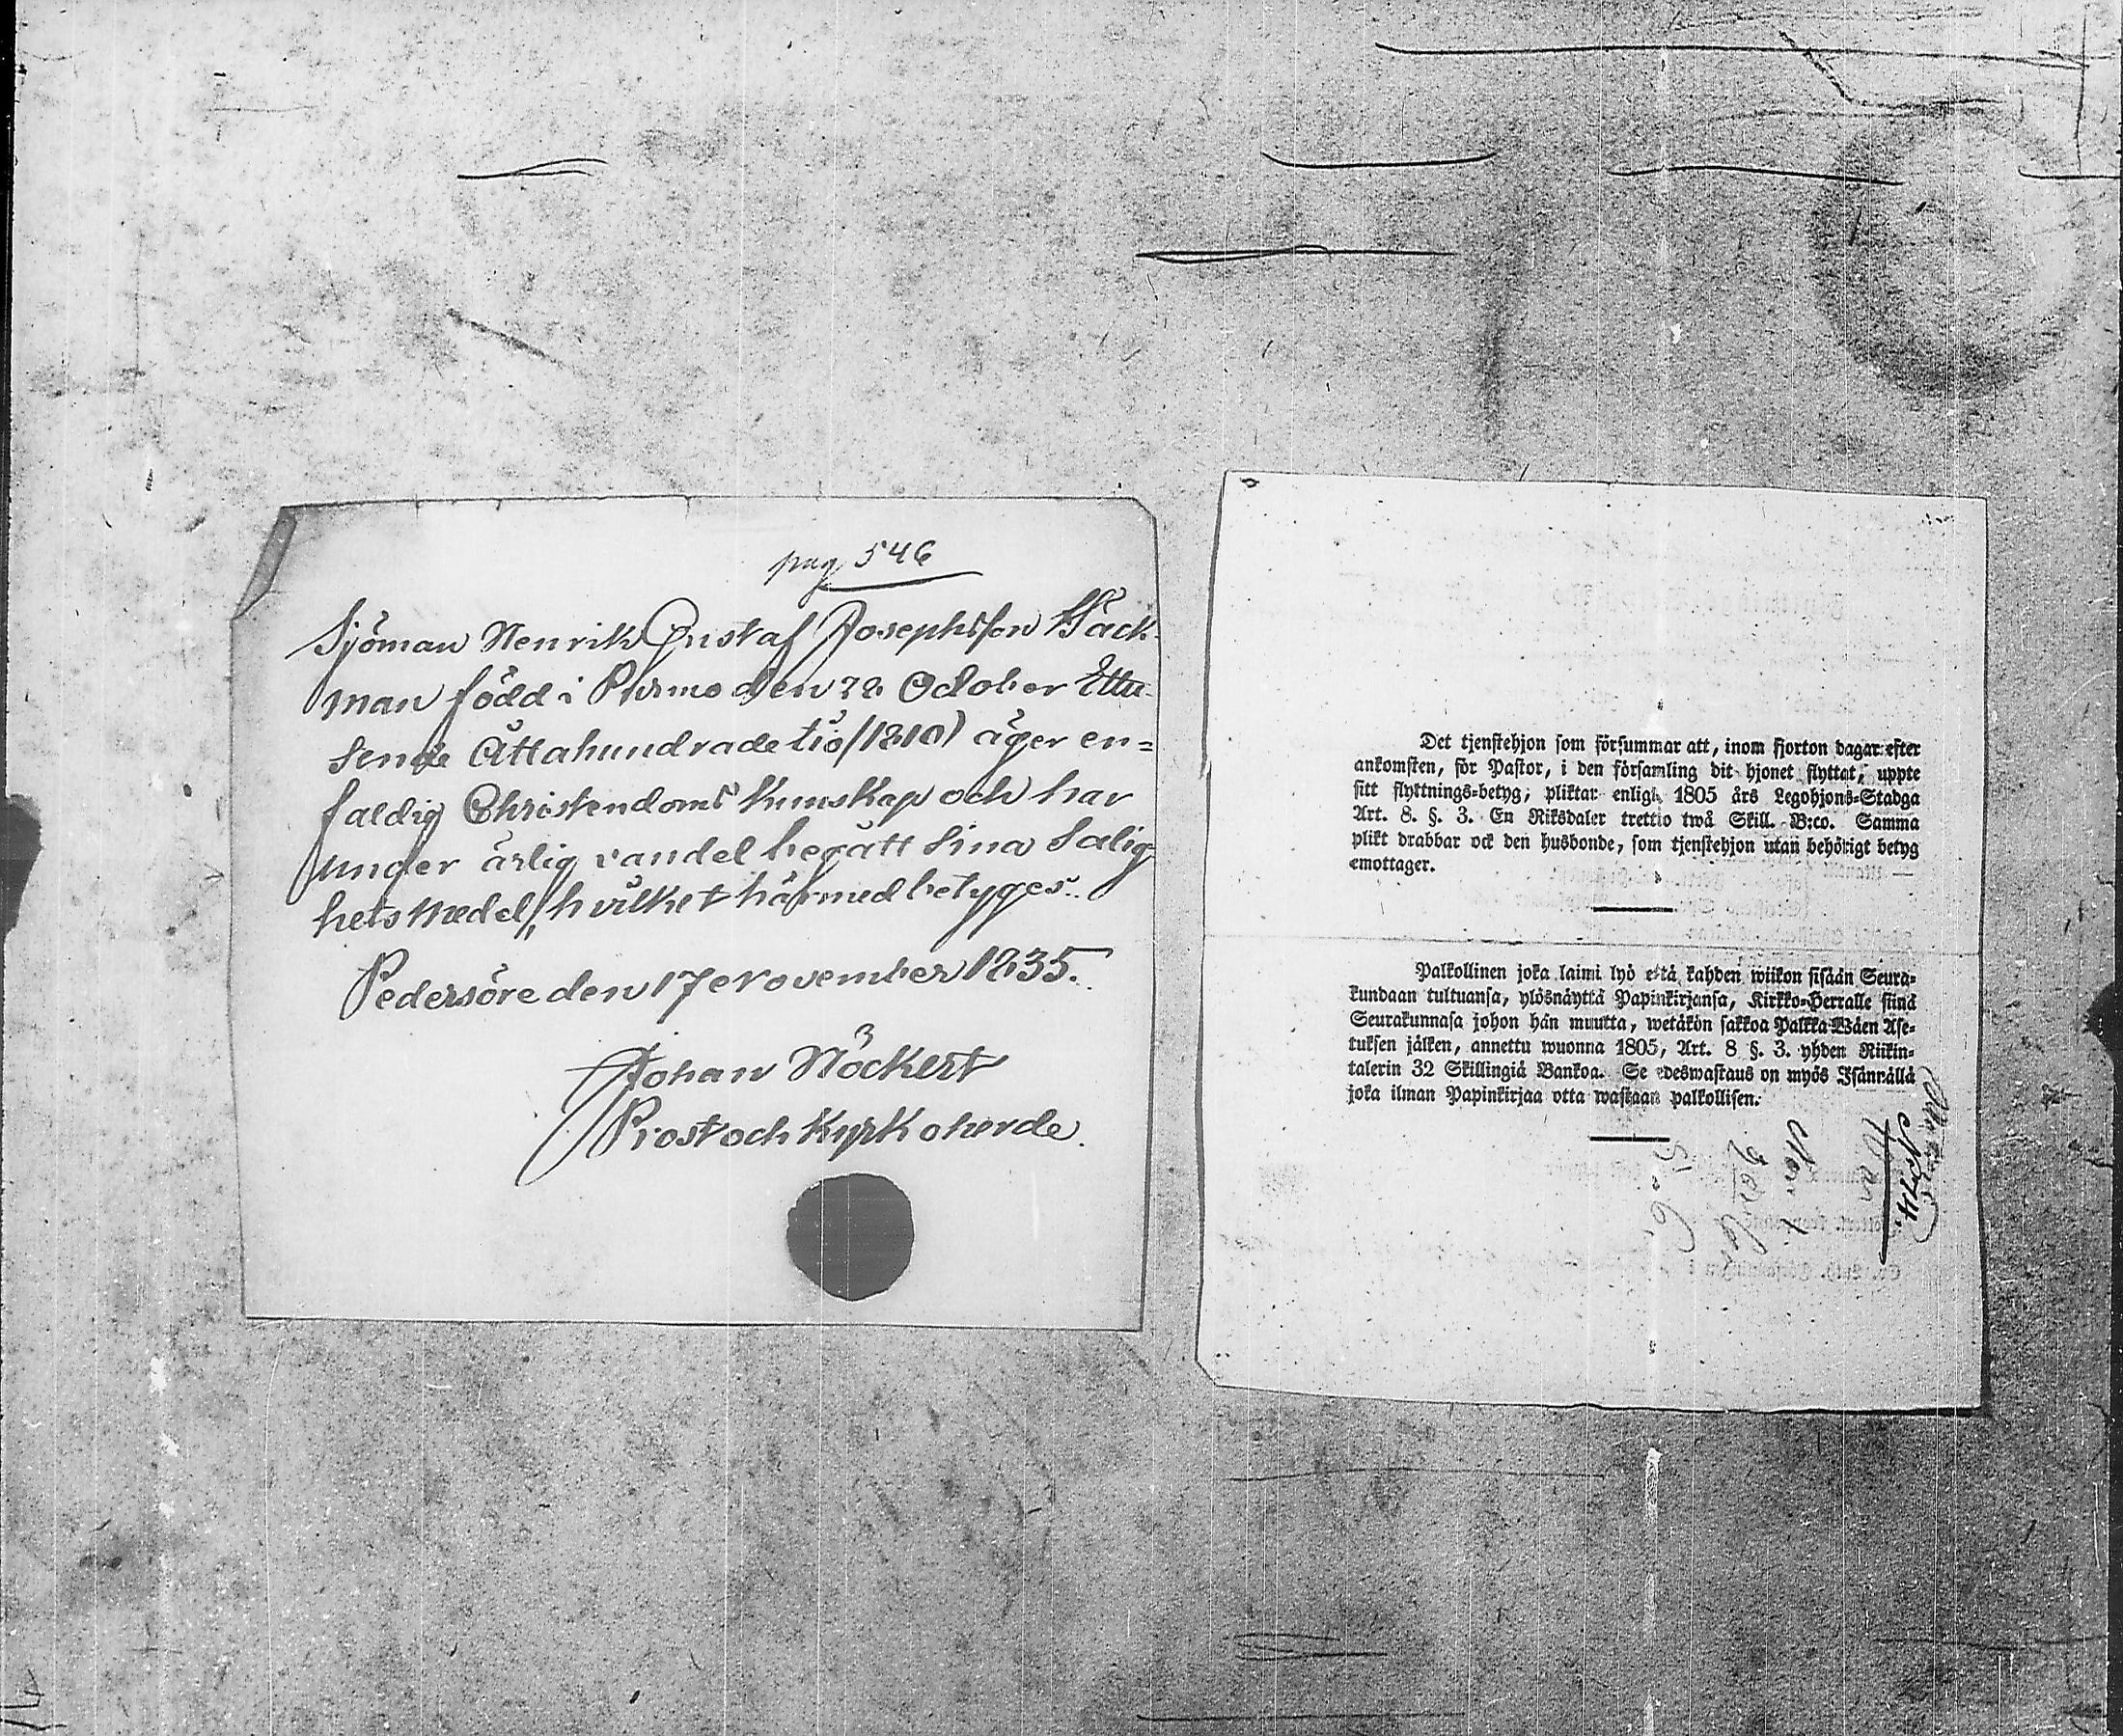 pag 546
Sjöman Henrik Gustaf Josephsson Back-
man född i Purmo den 22 October Ettu-
sende Åttahundrade tio (1810) äger en=
faldig Christendoms Kunskap och har
under ärlig vandel begått Sina Salig-
hets Medel, hvilket härmed betyges.
Pedersöre den 17 November 1835.
Johan Höckert
Prost och Kyrkoherde.
Det tjenstehjon som försummar att, inom fjorton dagar efter
ankomsten, för Pastor, i den församling dit hjonet flyttat, uppte
sitt flyttnings-betyg, pliktar enligt 1805 års Legohjons-Stadga
Art. 8. §. 3. En Riksdaler trettio twå Skill. B:co. Samma
plikt drabbar ock den husbonde, som tjenstehjon utan behörigt betyg
emottager.
Palkollinen joka laimi lyö että kahden wiikon sisään Seura-
kundaan tultuansa, ylösnäyttä Papinkirjansa, Kirkko-Herralle siinä
Seurakunnasa johon hän muutta, wetäkön sakkoa Palkka-Wäen Ase-
tuksen jälken, annettu wuonna 1805, Art. 8 §. 3. yhden Riikin-
talerin 32 Skillingiä Bankoa. Se edeswastaus on myös Isännällä
joka ilman Papinkirjaa otta wastaan palkollisen.